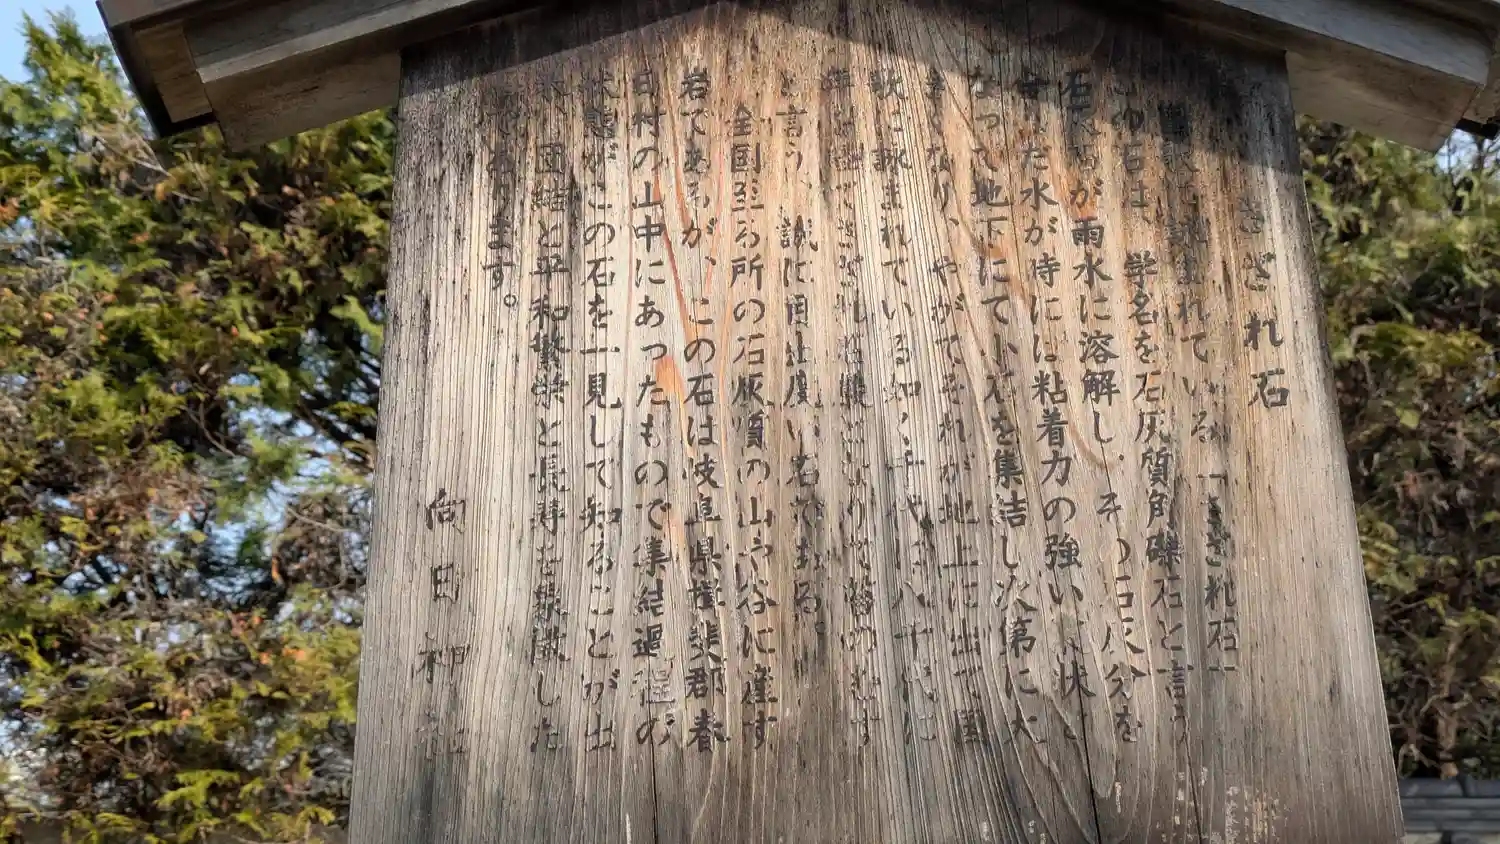 さざれ石
国歌に詠まれている「さざれ石」
この石は、学名を石灰質角礫石と言う
石灰石が雨水に溶解し、その石灰分を
含んだ水が時には粘着力の強い
なって地下にて小石を集結し次第に大
きくなり、やがてそれが地上に出て国
歌に詠まれている如く、千代に八千代に
さざれ石巌となりて苔のむす
と言う、誠に目出度い石である。
全国至る所の石灰質の山や谷に産す
岩であるが、この石は岐阜県揖斐郡春
日村の山中にあったもので集結過程の
状態がこの石を一見して知ることが出
来、団結と平和繁栄と長寿を象徴した
であります。
向日神社